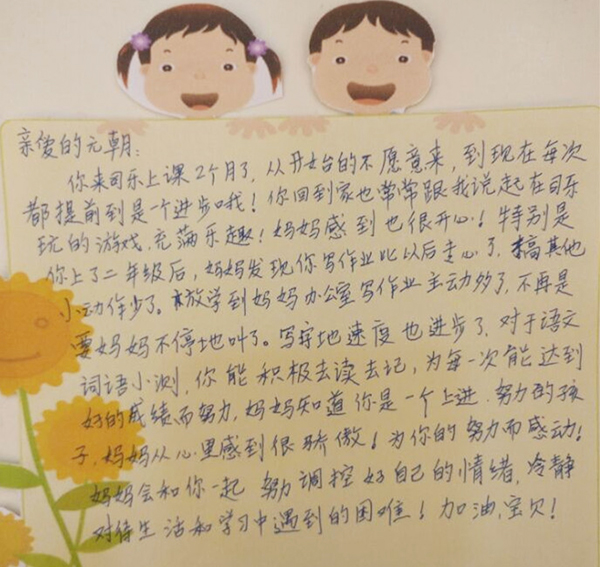 亲爱的元朝:
你来司乐上课2个月了,从开始台的不愿意来,到现在每次
都提前到是一个进步哦!你回到家也常常跟我说起在司乐
玩的游戏,充满乐趣!妈妈感到也很开心!特别是
你上了二年级后,妈妈发现你写作业比以后专心了,搞其他
小动作少了。放学到妈妈办公室写作业主动多了,不再是
要妈妈不停地叫了。写字地速度也进步了,对于语文
词语小测,你能积极去读去记,为每一次能达到
好的成绩而努力,妈妈知道你是一个上进、努力的孩
子,妈妈从心里感到很骄傲!为你的努力而感动!
妈妈会和你一起努调控好自己的情绪,冷静
对待生活和学习中遇到的困难!加油,宝贝!